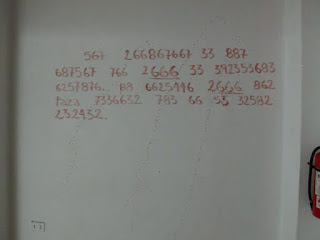 567 266867667 33 887
687567 766 2666 33 392353693
6257876... 88 6625446 2666 862
taza 7336632 783 66 53 32592
232432.